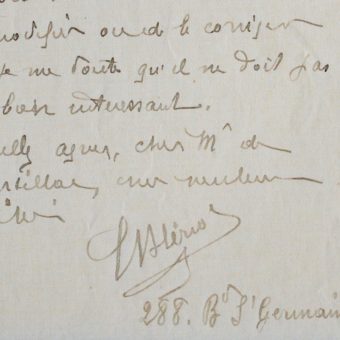 modifier ou de le corriger
je me doute qu'il ne doit pas
bien interessant.
agréer, cher Mr de
meilleur
288. Bd St Germain